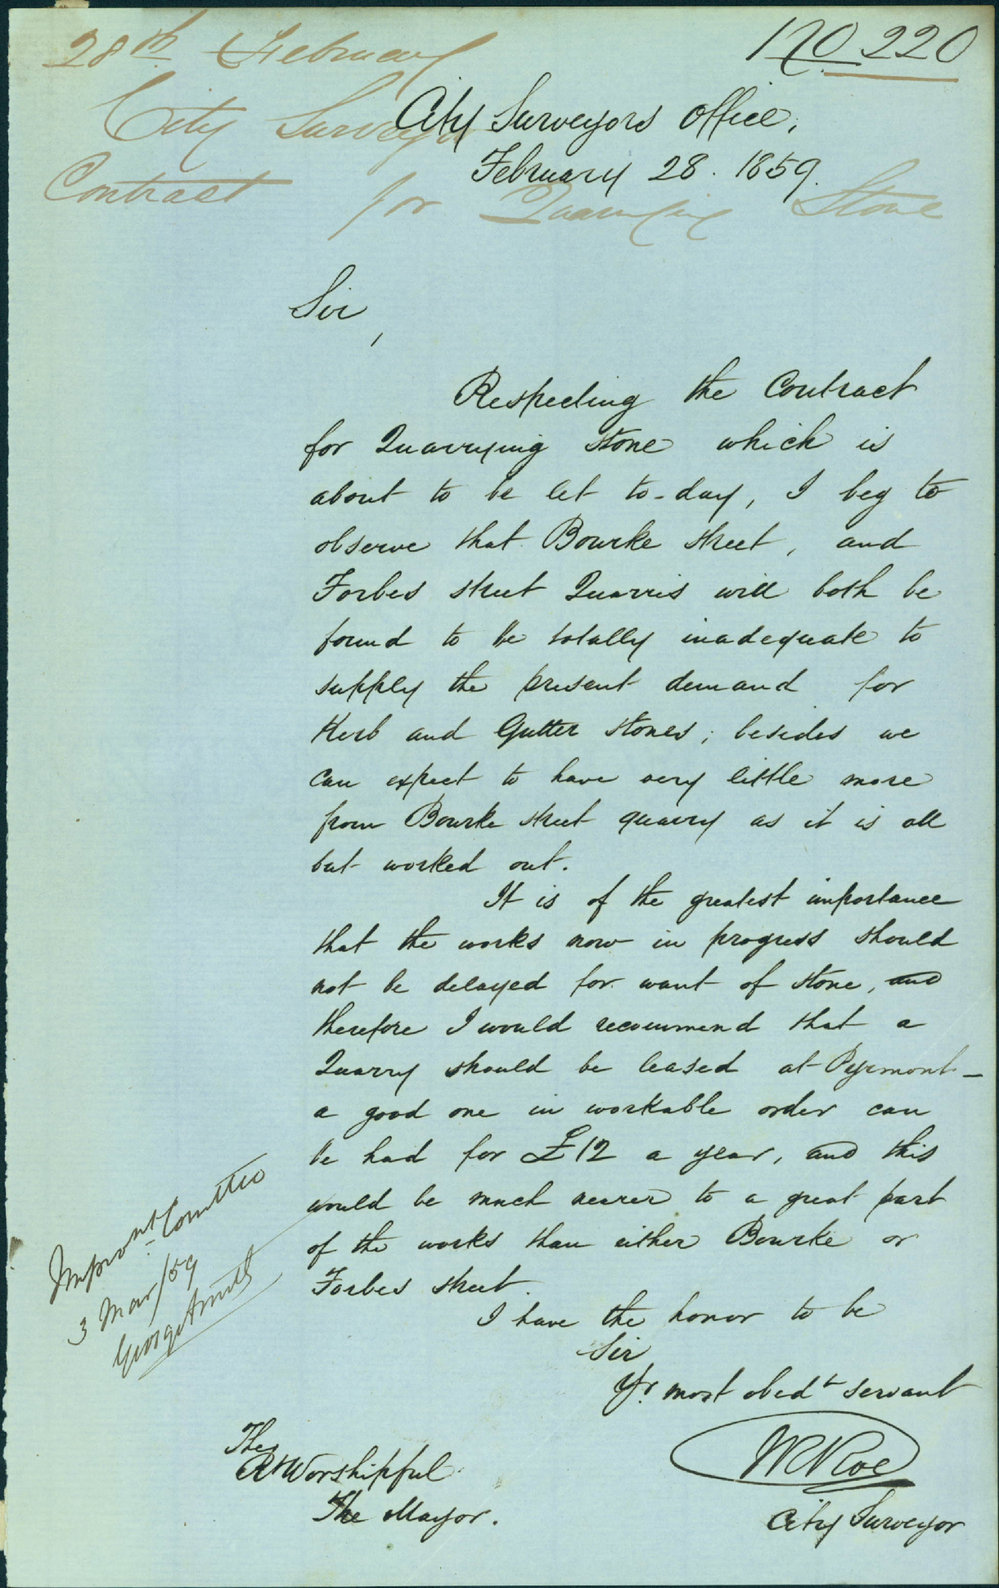 No 220
28th February
City Surveyor
Contract for Quarrying Stone
City Surveyors Office,
February 28. 1859.
Sir,
Respecting the Contract
for Quarrying Stone which is
about to be let to-day, I beg to
observe that Bourke street, and
Forbes street Quarris will both be
found to be totally inadequate to
supply the present demand for
Kerb and Gutter stones; besides we
can expect to have very little more
from Bourke street quarry as it is all
but worked out.
It is of the greatest importance
that the works now in progress should
not be delayed for want of stone, and
therefore I would recommend that a
Quarry should be leased at Pyrmont -
a good one in workable order can
be had for £12 a year, and this
would be much nearer to a great part
of the works than either Bourke or
Forbes street.
I have the honor to be
Sir
Yr. most obedt servant
City Surveyor
The
Rt Worshipful
The Mayor.
Improvnt Committee
3 Mar/59
George Smith